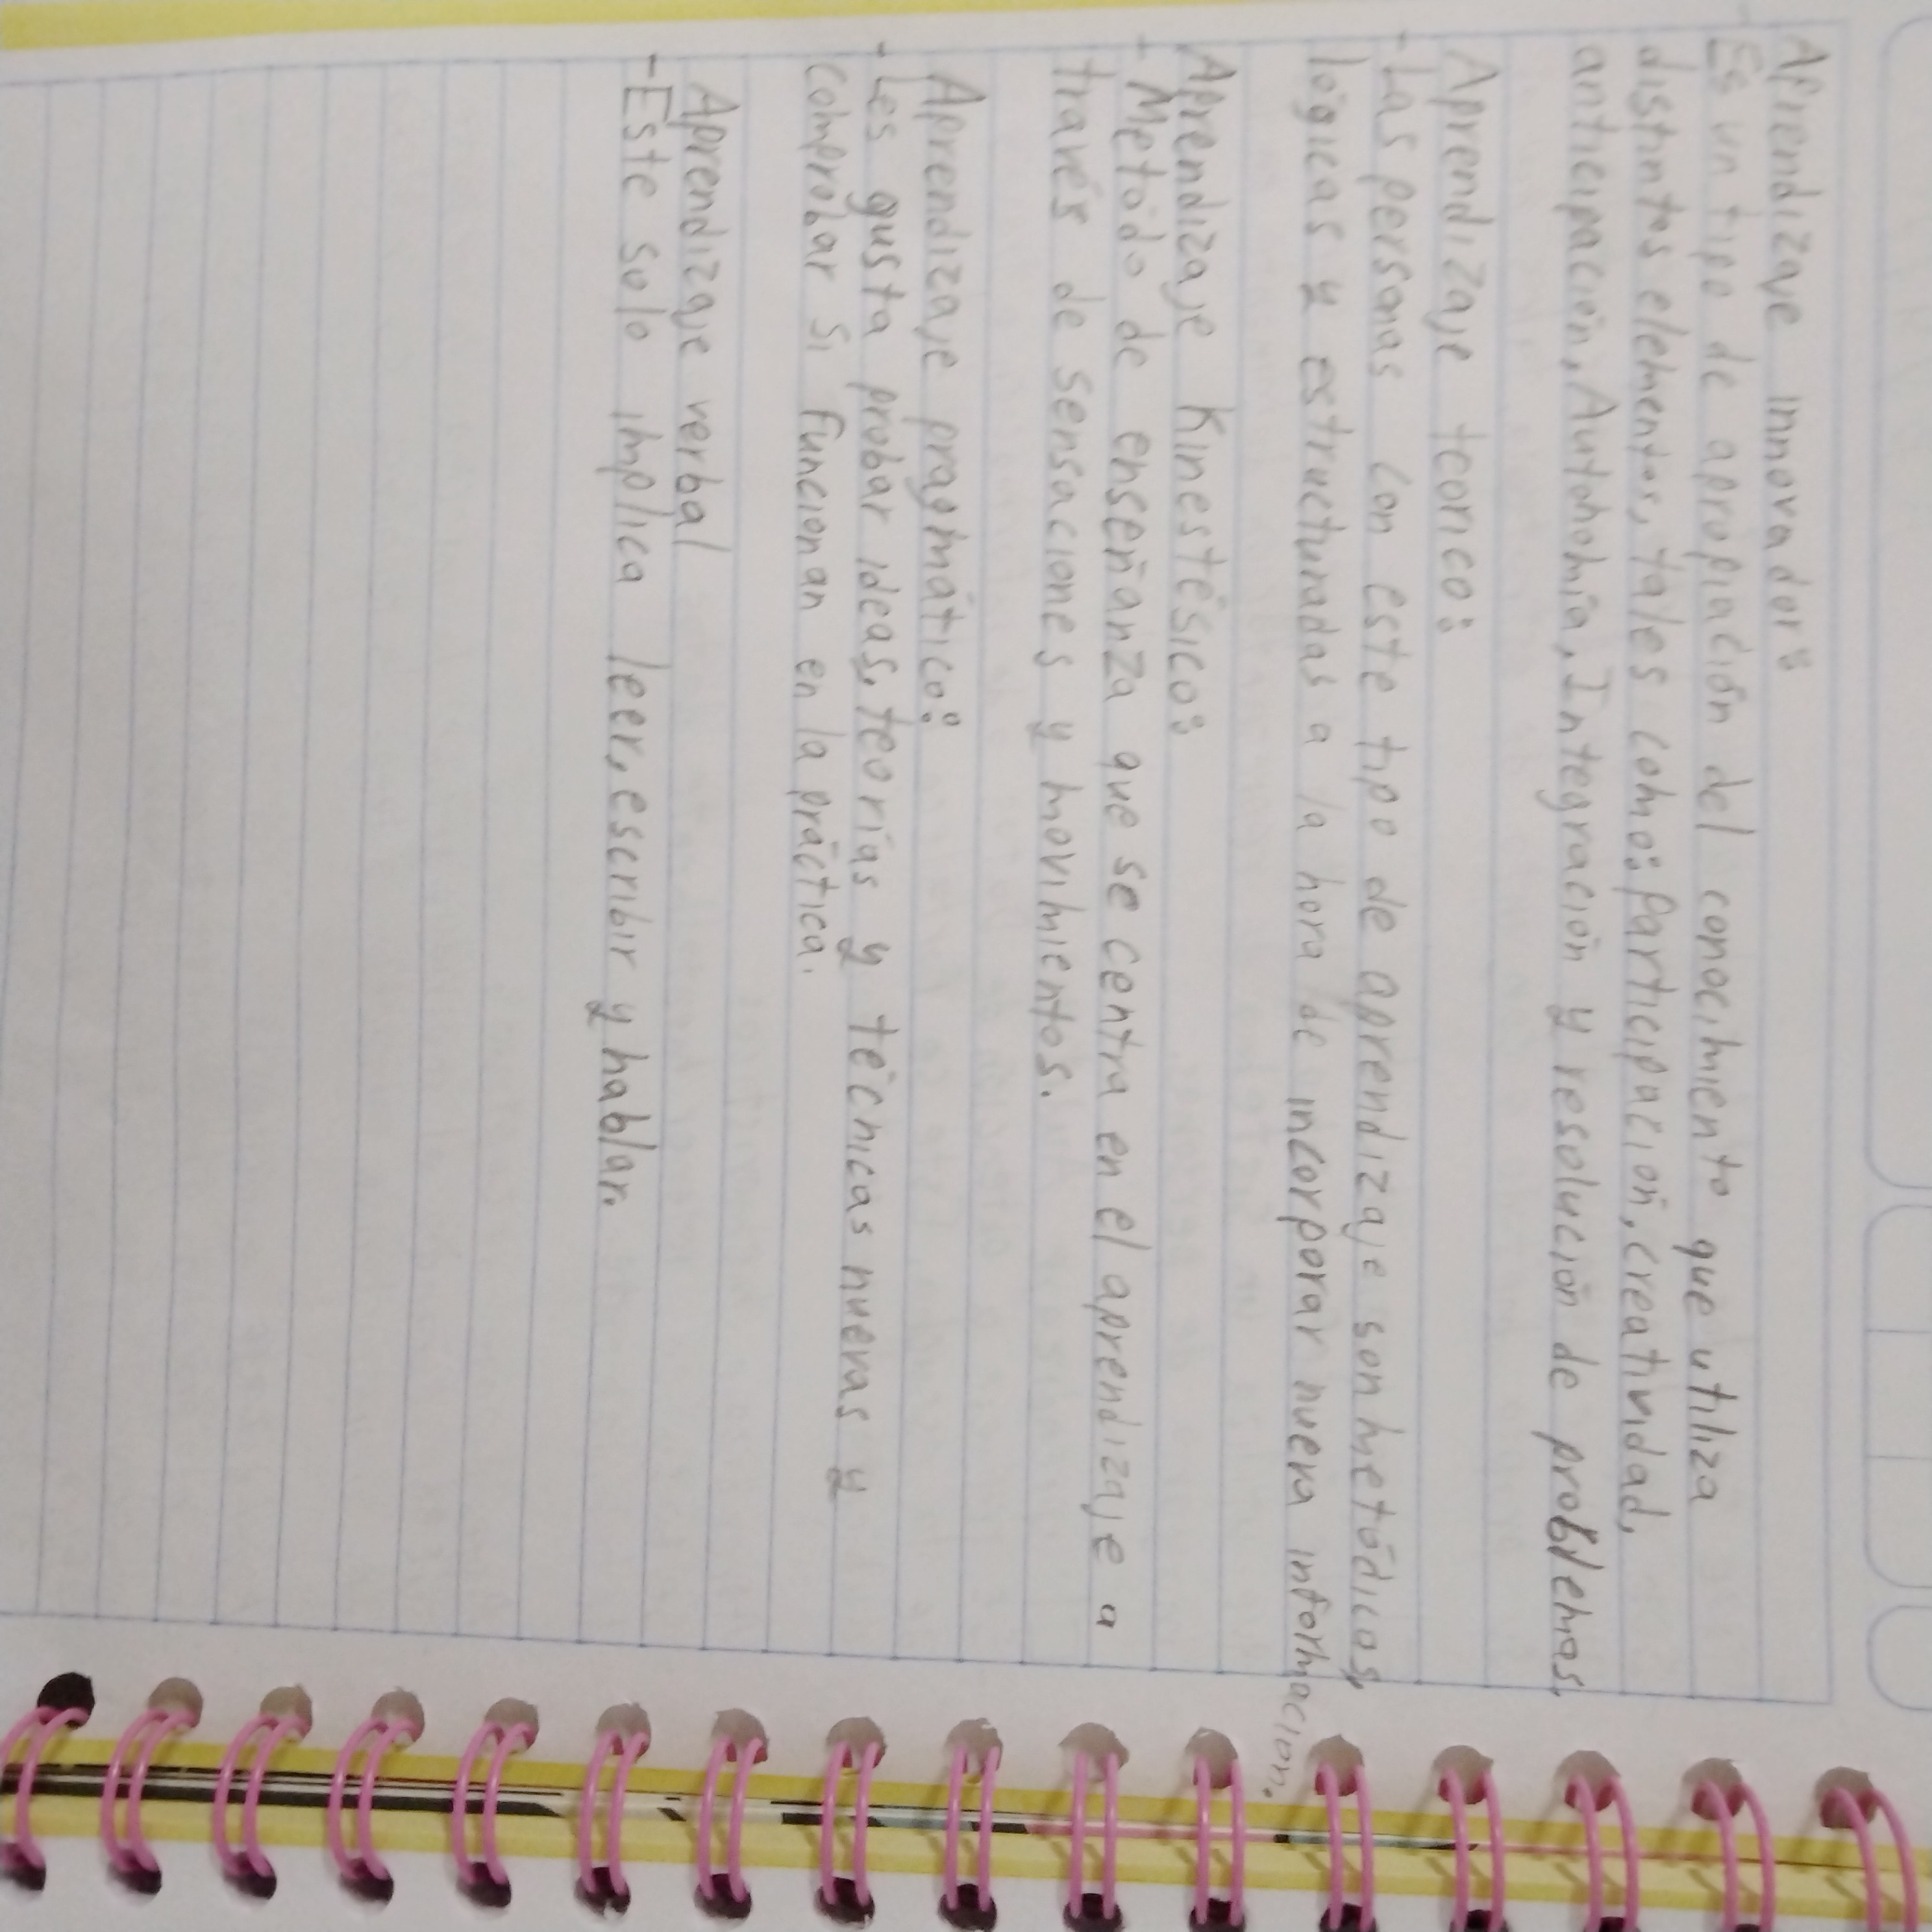 Aprendizaje innovador:
Es un tipo de apropiación del conocimiento que utiliza
distintos elementos, tales como: Participación, creatividad,
anticipación, Autonomía, Integración y resolución de problemas,
Aprendizaje teorico:
- Las personas con este tipo de aprendizaje son metódicas,
lógicas y estructuradas a la hora de incorporar nueva información.
Aprendizaje Kinestésico:
- Metódo de enseñanza que se centra en el aprendizaje a
través de sensaciones y movimientos.
Aprendizaje pragmático:
- Les gusta probar ideas, teorías y técnicas nuevas y
comprobar si funcionan en la práctica.
Aprendizaje verbal
- Este solo implica leer, escribir y hablar.